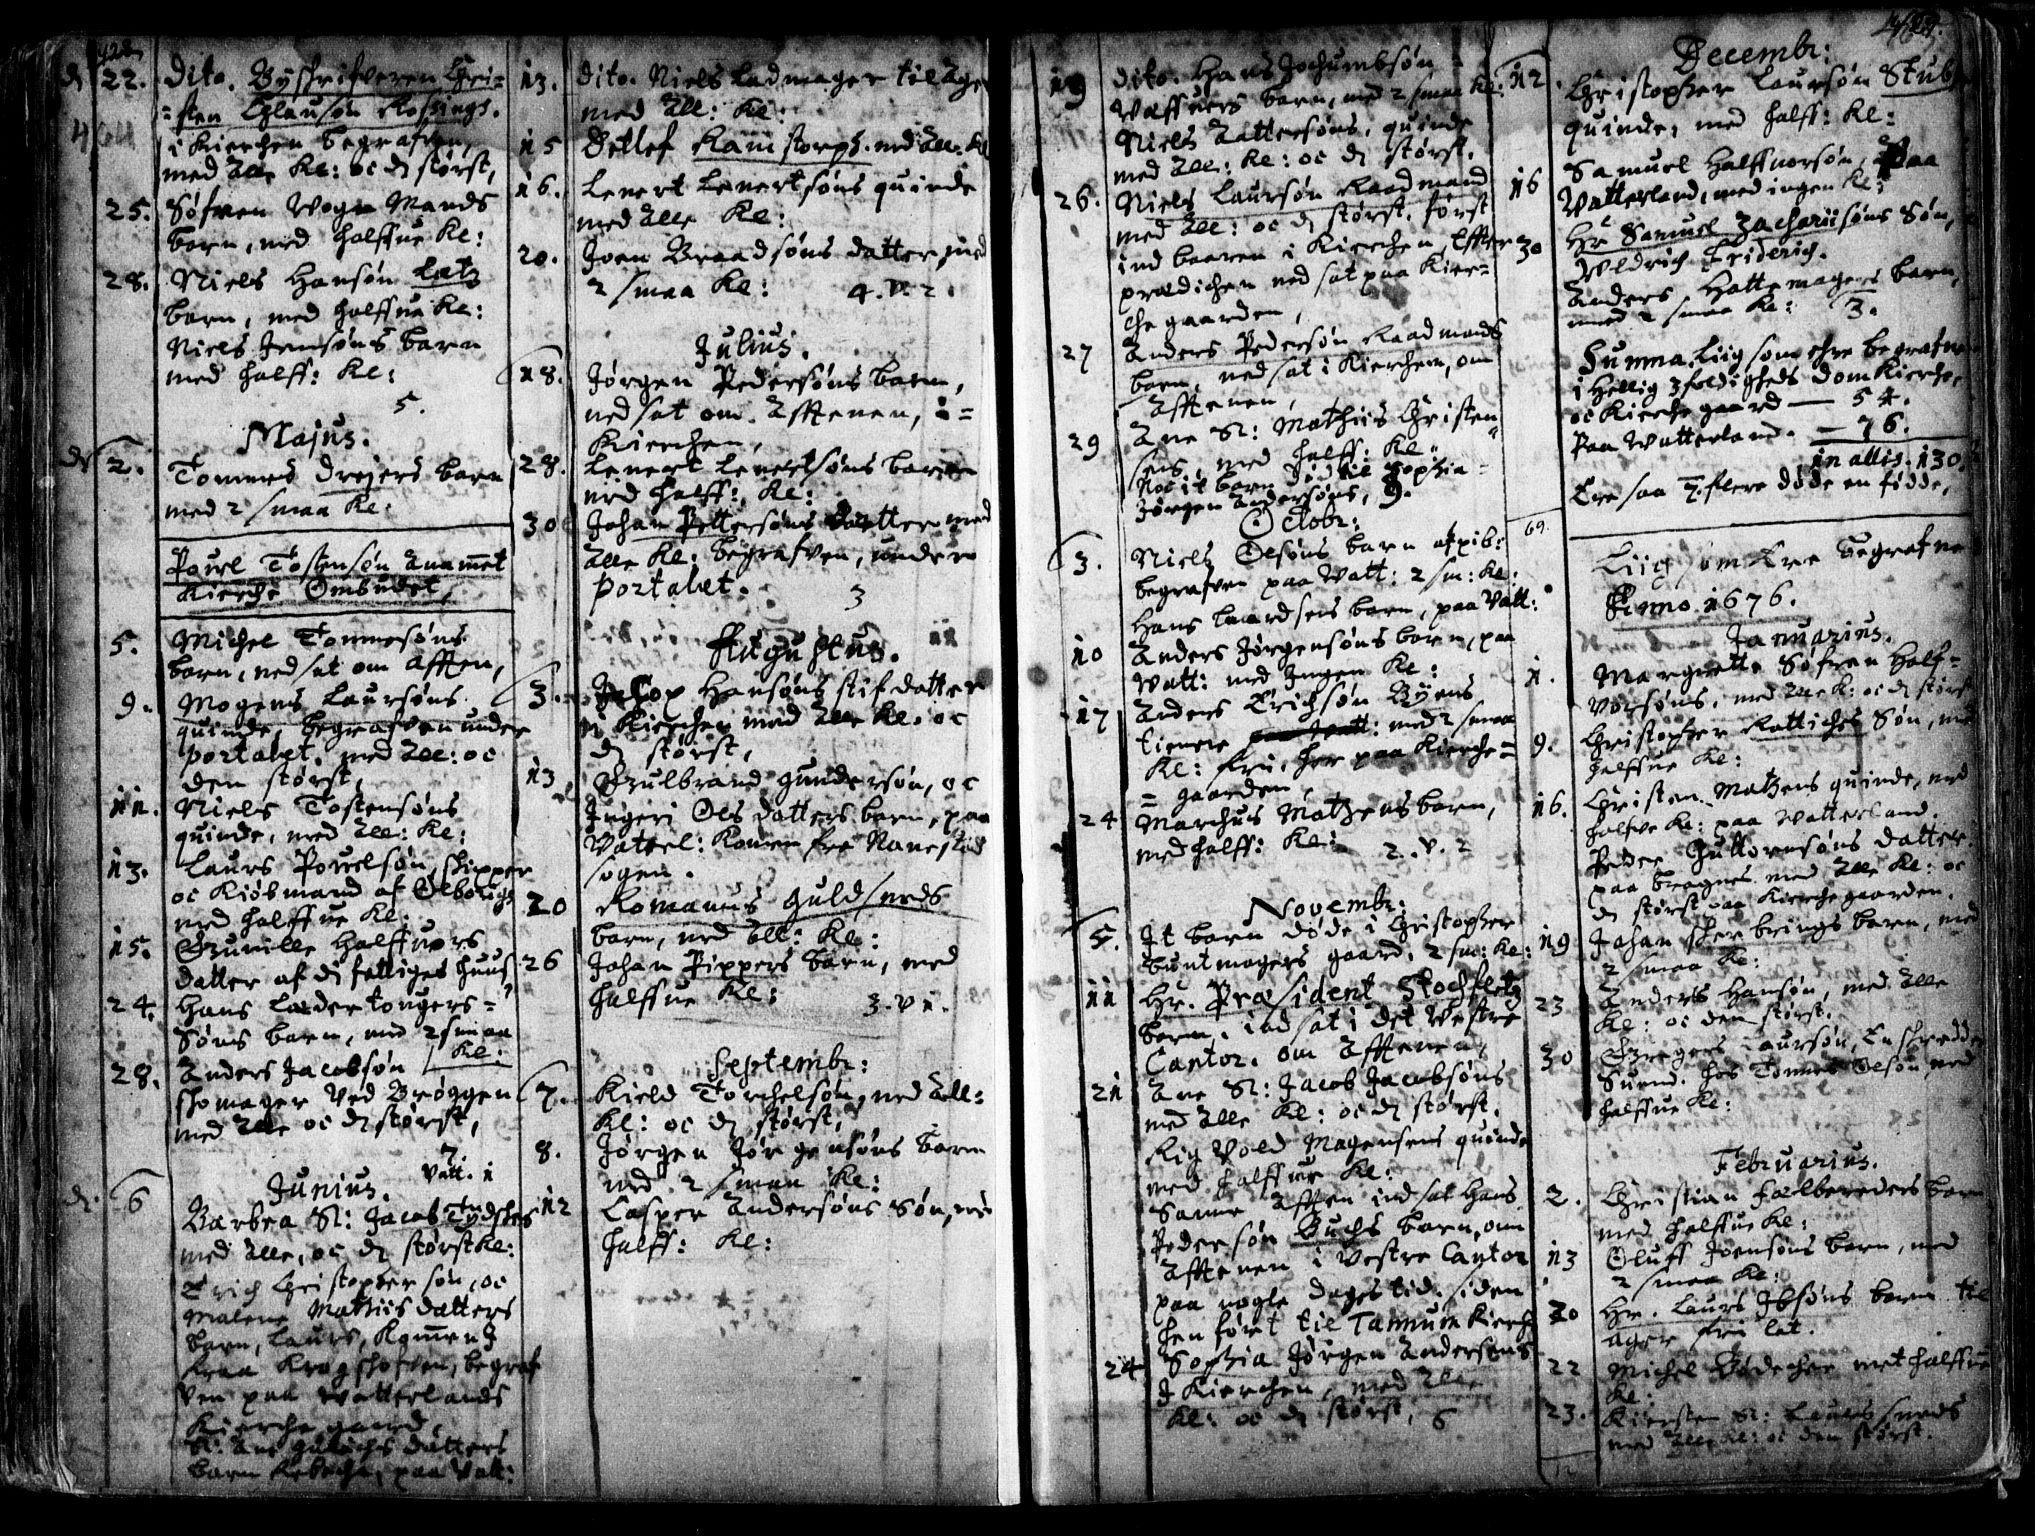 428
22. dito. Byskrifveren Chri-
=sten Clausøn
i Kierchen begrafven,
med alle Kl: oc dj størst,
25. Søfren Vogn Mands
barn, med halffue Kl:
28. Niels Hansøn
barn, med halffue Kl:
Niels Jensøns barn
med halff: Kl:
5.
Majus.
2. Tommes Drejers barn
med 2 smaa Kl:
Pouel Tostensøn Anammet
Kierche Ombudet,
5. Michel Tommesøns
barn, nedsat om afften,
9. Mogens Laursøns
quinde, begrafven under
portalet, med All: oc
den størst,
11. Niels Tostensøns
quinde, med All: Kl:
13. Laurs Pouelsøn, skipper
oc Kiøbmand af Olborig,
med halffue Kl:
15. Gunille Halffuors
datter af dj fattiges huus
24. Hans
Søns barn, med 2 smaa
Kl:
28. Anders Jacobsøn
skomager ved Bryggen
med alle oc dj størst,
7.
Vatt. 1
Junius.
6 Barbra Sl: Jacob Tydskes
med Alle, oc dj størst Kl:
Erich Christophersøn, oc
Malene Mathiis datters
barn, Laurs, Kommen
fraa Kragskofven, begraf
ven paa Vatterlands
Kierche gaard,
Sl: Ane datters
barn, paa Vatt:
13. dito. Niels Ladmager til Ager
med All: Kl:
15 Detlef Ramstorph. med All. Kl
16. Lenert Lenertsøns quinde
med Alle Kl:
20. Joen Braadsøns datter, med
2 smaa Kl: 4. V. 2.
Julius.
18. Jørgen Pedersøns barn,
nedsat om Afftenen, i=
Kierchen,
28. Lenert Lenertsøns barn
med halff: Kl:
30 Johan Pettersøns datter med
Alle Kl: begrafven, under
portalet. 3
Augustus.
3. Jacop Hansøns stifdatter
i Kierchen med Alle Kl. oc
dj størst,
13 Gulbrand Gundersøn, oc
Ingeri Ols datters barn, paa
Vatterl: Komen fra Nanestad
sogen.
20 Romanus Guldsmeds
barn, med All: Kl:
26 Johan Pippers barn, med
halffue Kl: 3. V 1.
Septembr:
7. Kield Torchelsøn, med All=
Kl: oc dj størst,
8. Jørgen Jørgensøns barn
med 2 smaa Kl:
12 Casper Andersøns Søn, med
halff: Kl:
19 dito. Hans Jochumbsøn
Vaffuers barn, med 2 smaa Kl:
Niels Rattersøns, quinde
med All: Kl: oc dj størst.
26. Niels Laursøn Raadmand
med All: oc dj størst, først
ind baaren i Kierchen, Effter
prædichen nedsat paa Kier=
che gaarden,
27 Anders Pedersøn Raadmands
barn, nedsat i Kierchen, om
Afftenen,
29 Ane Sl: Mathiis Christen
sens, med halff: Kl:
Noc it barn død til Sophia
Jørgen Andersøns, 9.
Octobr:
3. Niels Olsøns barn
begrafven paa Vatt: 2 sm: Kl:
Hans Laardsens barn, paa Vatt:
10 Anders Jørgensøns barn, paa
Vatt: med Ingen Kl:
17 Anders Erichsøn Byens
tienere paa Vatt: med 2 smaa
Kl: fri, her paa Kierche=
=gaarden,
24 Marchus Matzens barn,
med halff: Kl: 2. V. 2
Novembr:
5. It barn døde i Christopher
buntmagers gaard, 2 sm: Kl:
11 Hr. Præsident Stochfletz
barn, indsat i det Vestre
Cantor. om Afftenen,
21 Ane Sl: Jacob Jacobsøns
med Alle Kl: oc dj størst.
Rig Vold Magensens quinde
med halffue Kl:
Samme Afften indsat Hans
Pedersøn Buchs barn, om
Afftenen i Vestre Cantor
paa nogle dages tid, siden
hen ført til Tanum Kirch
24 Sophia Jørgen Andersens
I Kierchen, med Alle
Kl: oc dj størst, 6
429.
Decembr:
12. Christopher Laursøn Stub
quinde, med halff: Kl:
16 Samuel Halffuorsøn, paa
Vatterland, med ingen Kl:
Hr Samuel Zachariisøns Søn,
Woldrich Friderich.
30 Anders Hattemagers barn,
med 2 smaa Kl: 3.
Summa. Liig som ehre begrafne
i Hellig 3foldigheds domKierche,
oc Kierchegaard — 54.
Paa Vatterland. — 76.
in alles. 130.
Ere saa 7. flere døde en fødde,
69.
Liig som Ere begrafne
Anno. 1676.
Januarius.
1. Margrette Søfren Half=
vorsøns, med Alle K: oc dj størst
9. Christopher Rattiches Søn, med
halffue Kl:
16. Christen Matzens quinde, med
halfve Kl: paa Vatterland.
Peder Guttormsøns datter
paa Bragnes med Alle Kl: oc
dj størst paa Kierchegaarden.
19 Johan barn, med
2 smaa Kl:
23 Anders Hansøn, med Alle
Kl: oc den størst.
30 Gregers Laursøn, En skredder
Suend. hos Tommes Olsøn, med
halffue Kl:
Februarius.
2. Christian Fælbereders barn
med halffue Kl:
13 Oluff Joensøns barn, med
2 smaa Kl:
20 Hr. Laurs Ibsøns barn til
Ager fri let.
22 Michel Bødecher met halffue
Kl:
23. Kiersten Sl: Laurs smeds
med Alle Kl: oc den størst.